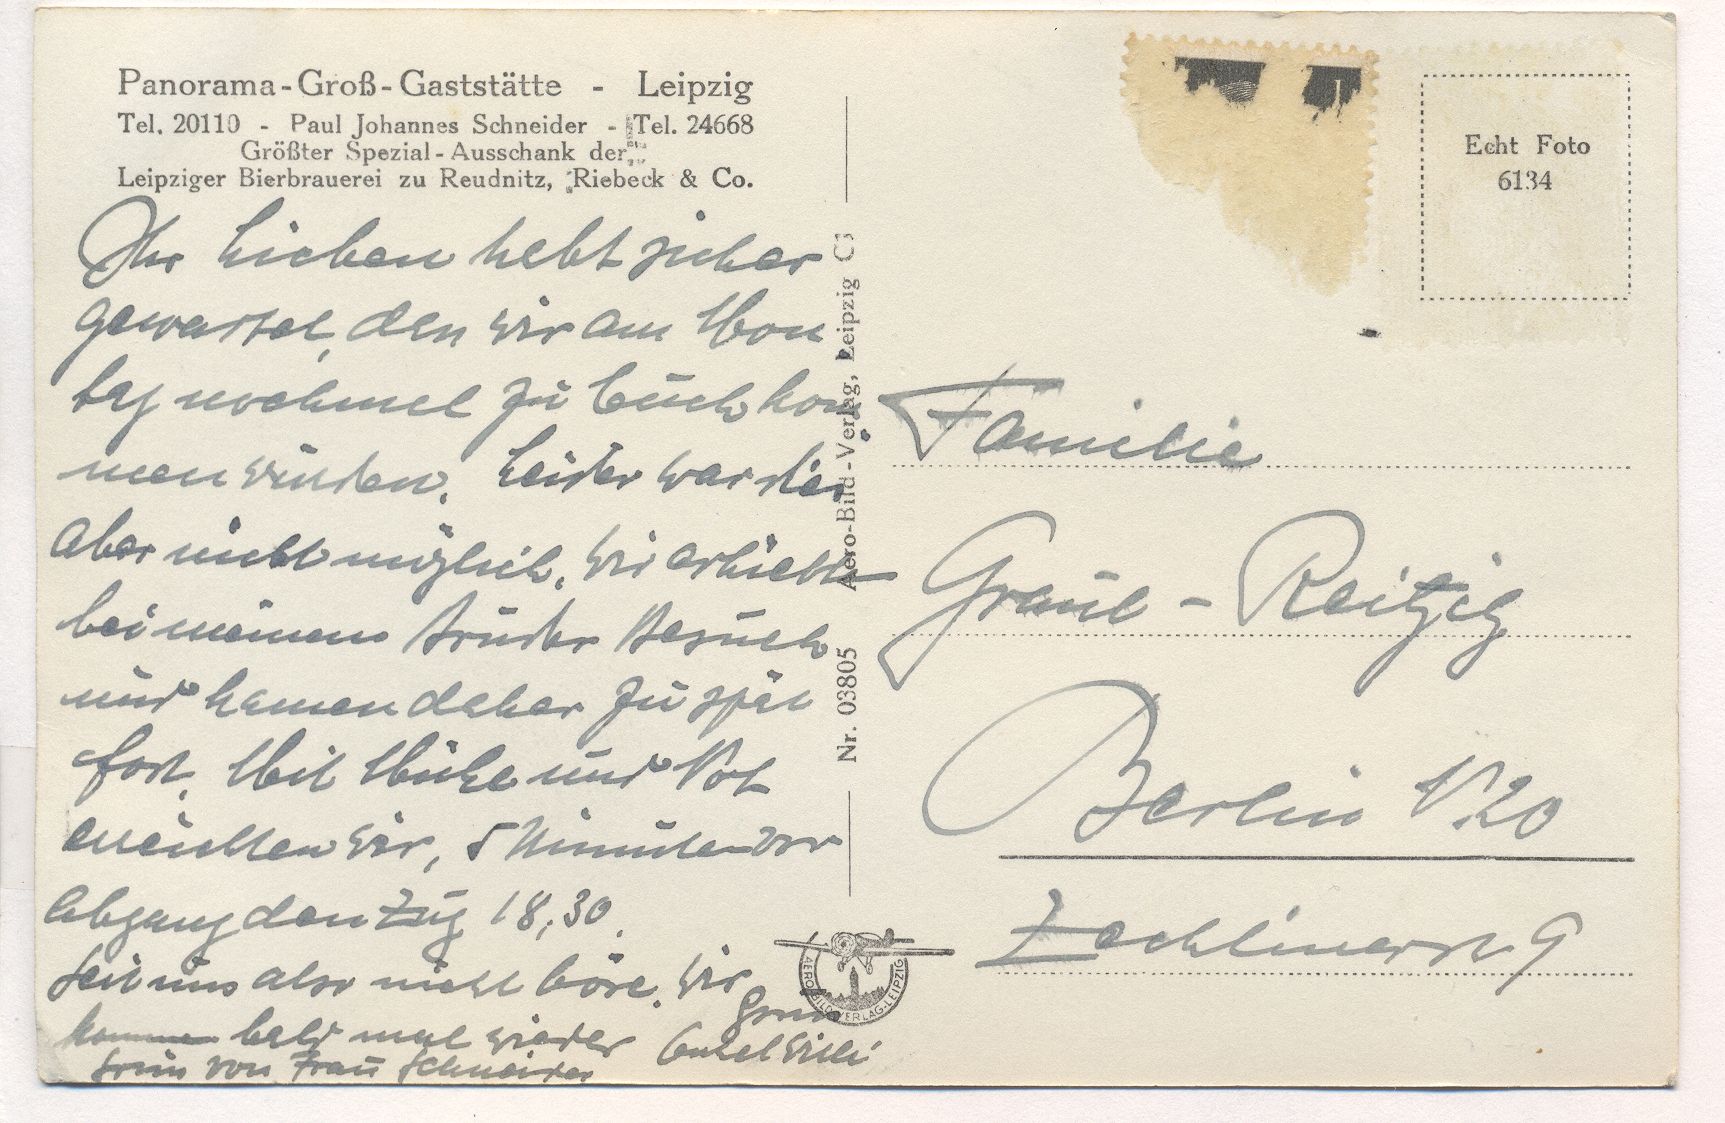 Panorama-Groß-Gaststätte - Leipzig
Tel. 20110 - Paul Johannes Schneider - Tel. 24668
Größter Spezial-Ausschank der
Leipziger Bierbrauerei zu Reudnitz, Riebeck & Co.
Ihr Lieben habt sicher
gewartet, den wir am Mon
tag nochmal zu Euch kom
men würden. Leider war dies
aber nicht möglich, wir erhielten
bei meinem Bruder Besuch
und kamen daher zu spät
fort. Mit Mühe und Not
erreichten wir, 5 Minuten vor
Abgang den Zug 18,30.
Seit uns also nicht böse. Wir
kommen bald mal wieder
Gruss
Onkel Willi
Gruss von Frau Schneider
Aero-Bild-Verlag, Leipzig C1
Nr. 03805
AERO-BILD-VERLAG-LEIPZIG
Echt Foto
6134
Familie
Graul - Reitzig
Berlin N20
Zechlinerstr 9